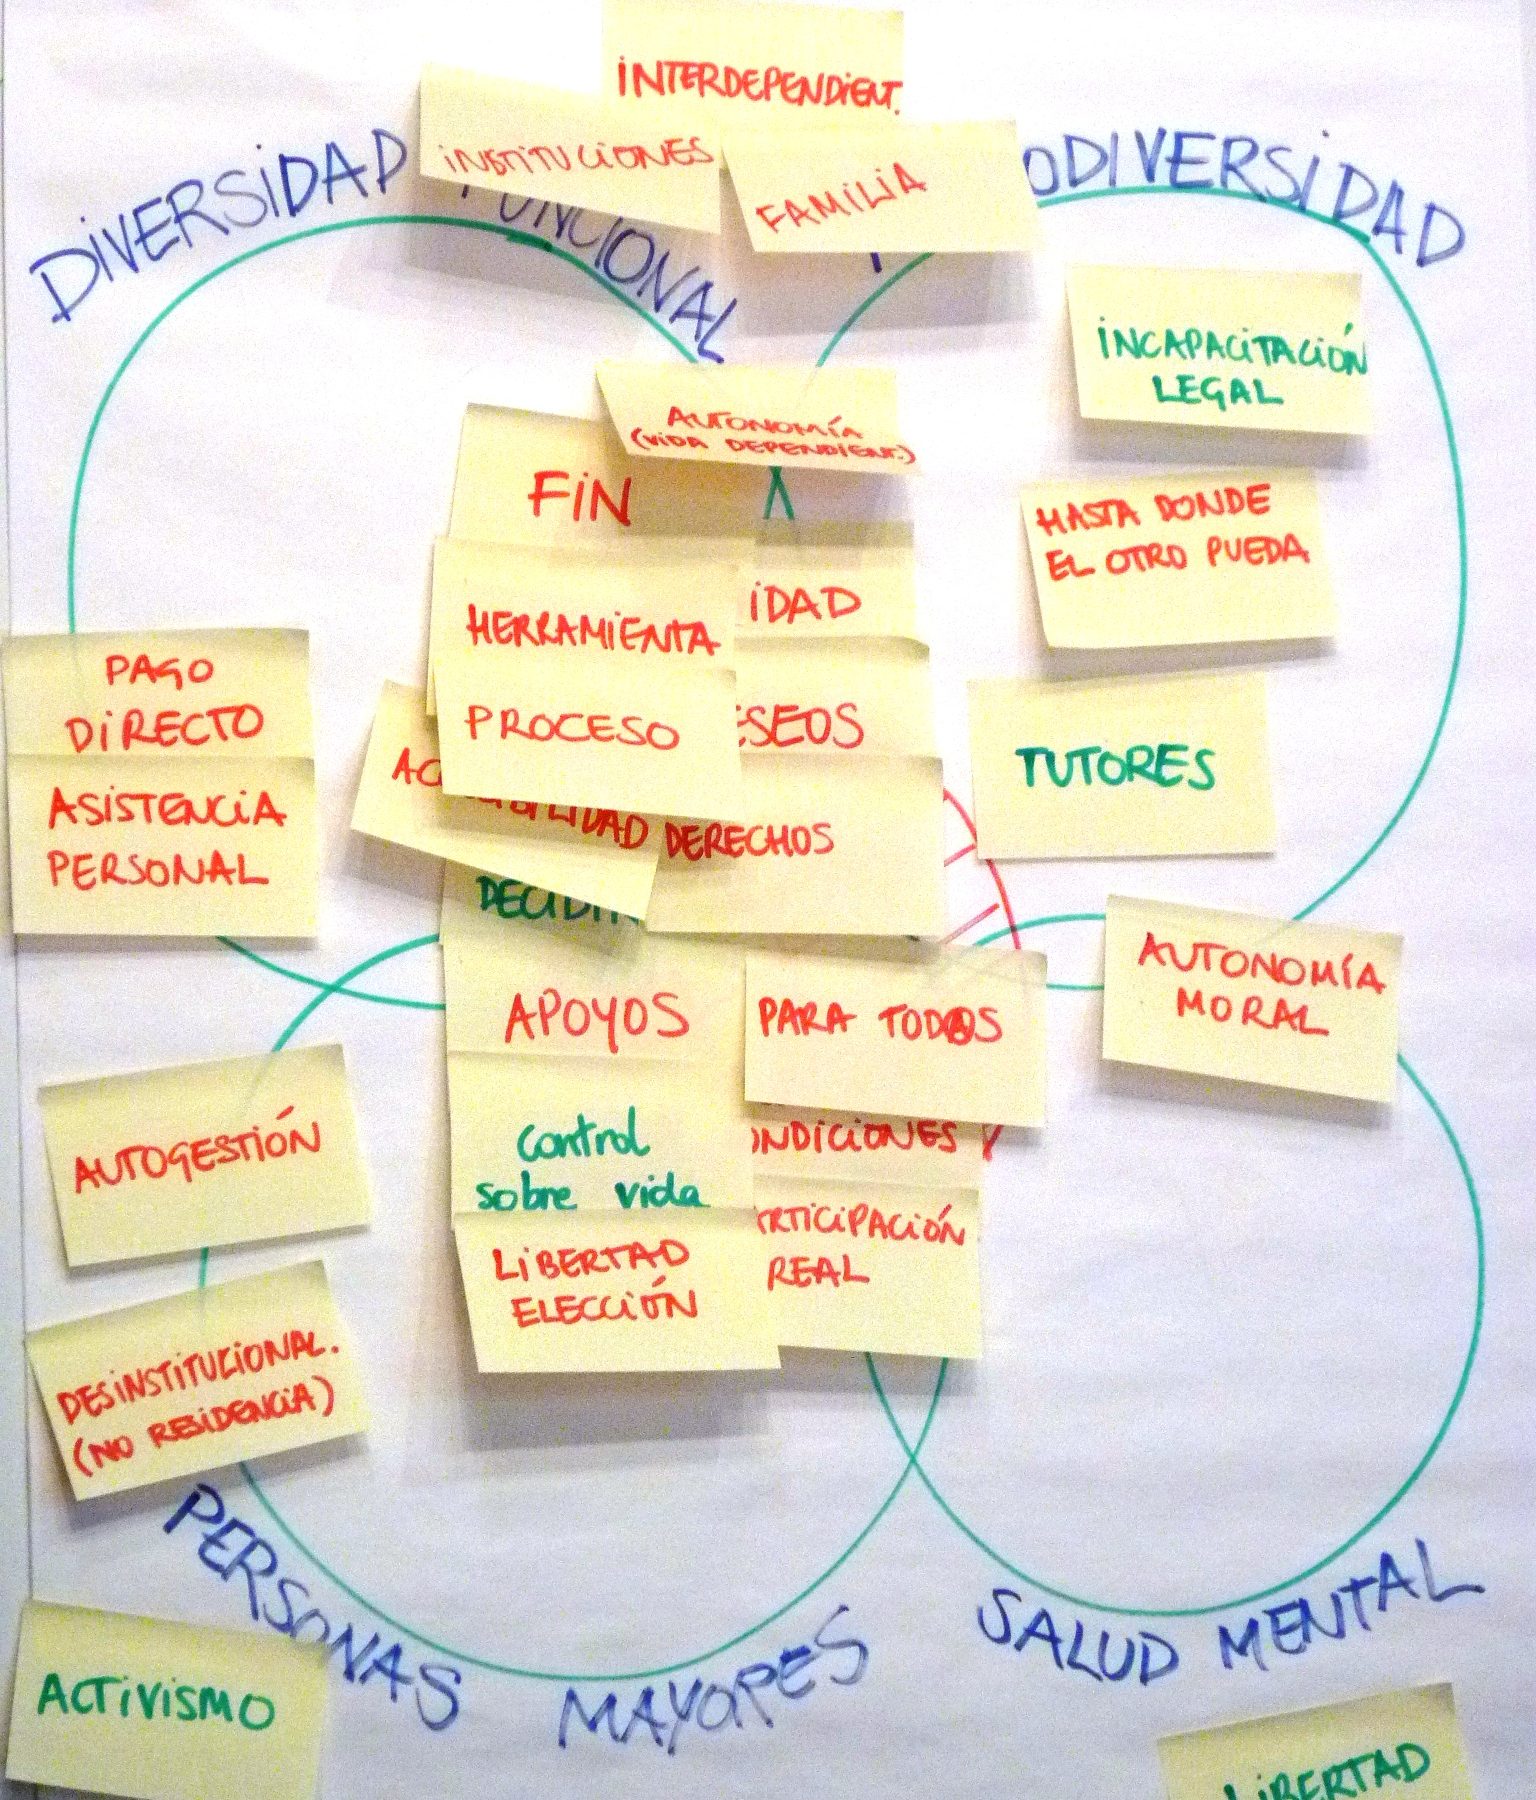 INTERDEPENDIENT.
INSTITUCIONES
FAMILIA
DIVERSIDAD FUNCIONAL
ODIVERSIDAD
INCAPACITACIÓN
LEGAL
AUTONOMÍA
(VIDA DEPENDIENT.)
FIN
HASTA DONDE
EL OTRO PUEDA
IDAD
HERRAMIENTA
PAGO
DIRECTO
PROCESO
ESEOS
TUTORES
ASISTENCIA
PERSONAL
DERECHOS
AUTONOMÍA
MORAL
APOYOS
PARA TODAS
AUTOGESTIÓN
Control
sobre vida
ONDICIONES Y
ARTICIPACIÓN
REAL
LIBERTAD
ELECCIÓN
DESINSTITUCIONAL.
(NO RESIDENCIA)
PERSONAS MAYORES
SALUD MENTAL
ACTIVISMO
LIBERTAD